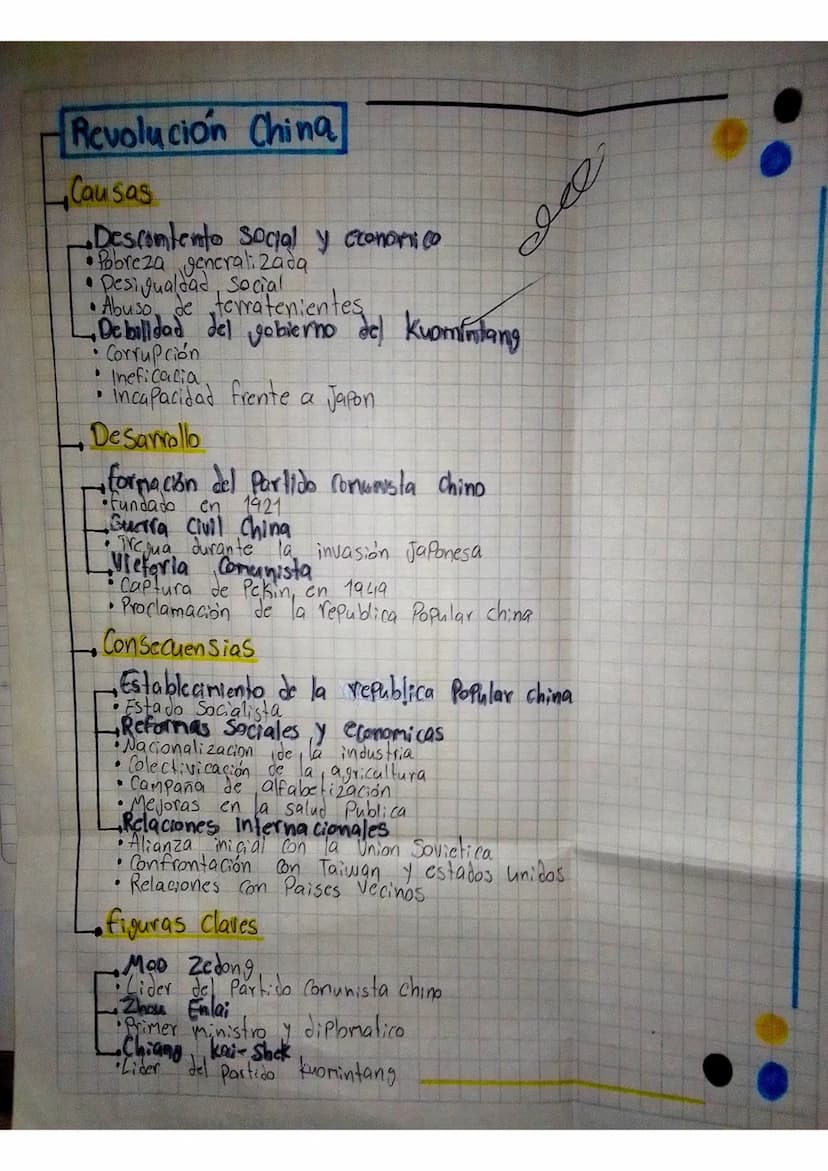 Revolución China
Causas
Descontento Social y economico
• Pobreza generalizada
• Desigualdad Social
• Abuso de terratenientes
Debilidad del gobierno del Kuomintang
• Corrupción
• Ineficacia
• Incapacidad frente a Japon
Desarrollo
formación del Partido Comunista Chino
• fundado en 1921
Guerra Civil China
• Tregua durante la invasión Japonesa
Victoria Comunista
• Captura de Pekin, en 1949
• Proclamación de la republica Popular china
Consecuensias
Establecamiento de la republica Popular china
• Estado Socialista
Reformas Sociales y economicas
• Nacionalizacion de la industria
• Colectivicación de la agricultura
• Campaña de alfabetización
• Mejoras en la salud Publica
Relaciones internacionales
• Alianza inicial con la Union Sovietica
• Confrontación con Taiwan y estados unidos
• Relaciones con Paises Vecinos
figuras Claves
Mao Zedong
• Lider del Partido Comunista chino
Zhou Enlai
• Primer ministro y diplomatico
Chiang Kai-Shek
• Lider del partido kuomintang